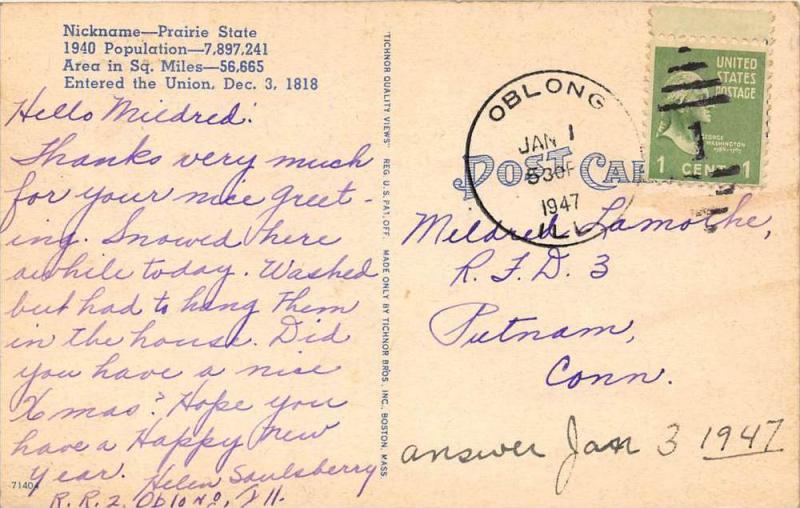 Nickname—Prairie State
1940 Population—7,897,241
Area in Sq. Miles—56,665
Entered the Union, Dec. 3, 1818
Hello Mildred:
Thanks very much
for your nice greet-
ing. Snowed here
awhile today. Washed
but had to hang them
in the house. Did
you have a nise
Xmas? Hope you
have a Happy New
Year. Helen Saulsberry
R.R.2, Oblong, Ill.
71404
"TICHNOR QUALITY VIEWS" REG. U.S. PAT. OFF. MADE ONLY BY TICHNOR BROS., INC., BOSTON, MASS.
OBLONG
JAN 1
530P
1947
ILL.
UNITED
STATES
POSTAGE
GEORGE
WASHINGTON
1 CENT 1
POST CARD
Mildred Lamothe,
R. F. D. 3
Putnam,
Conn.
answer Jan 3 1947